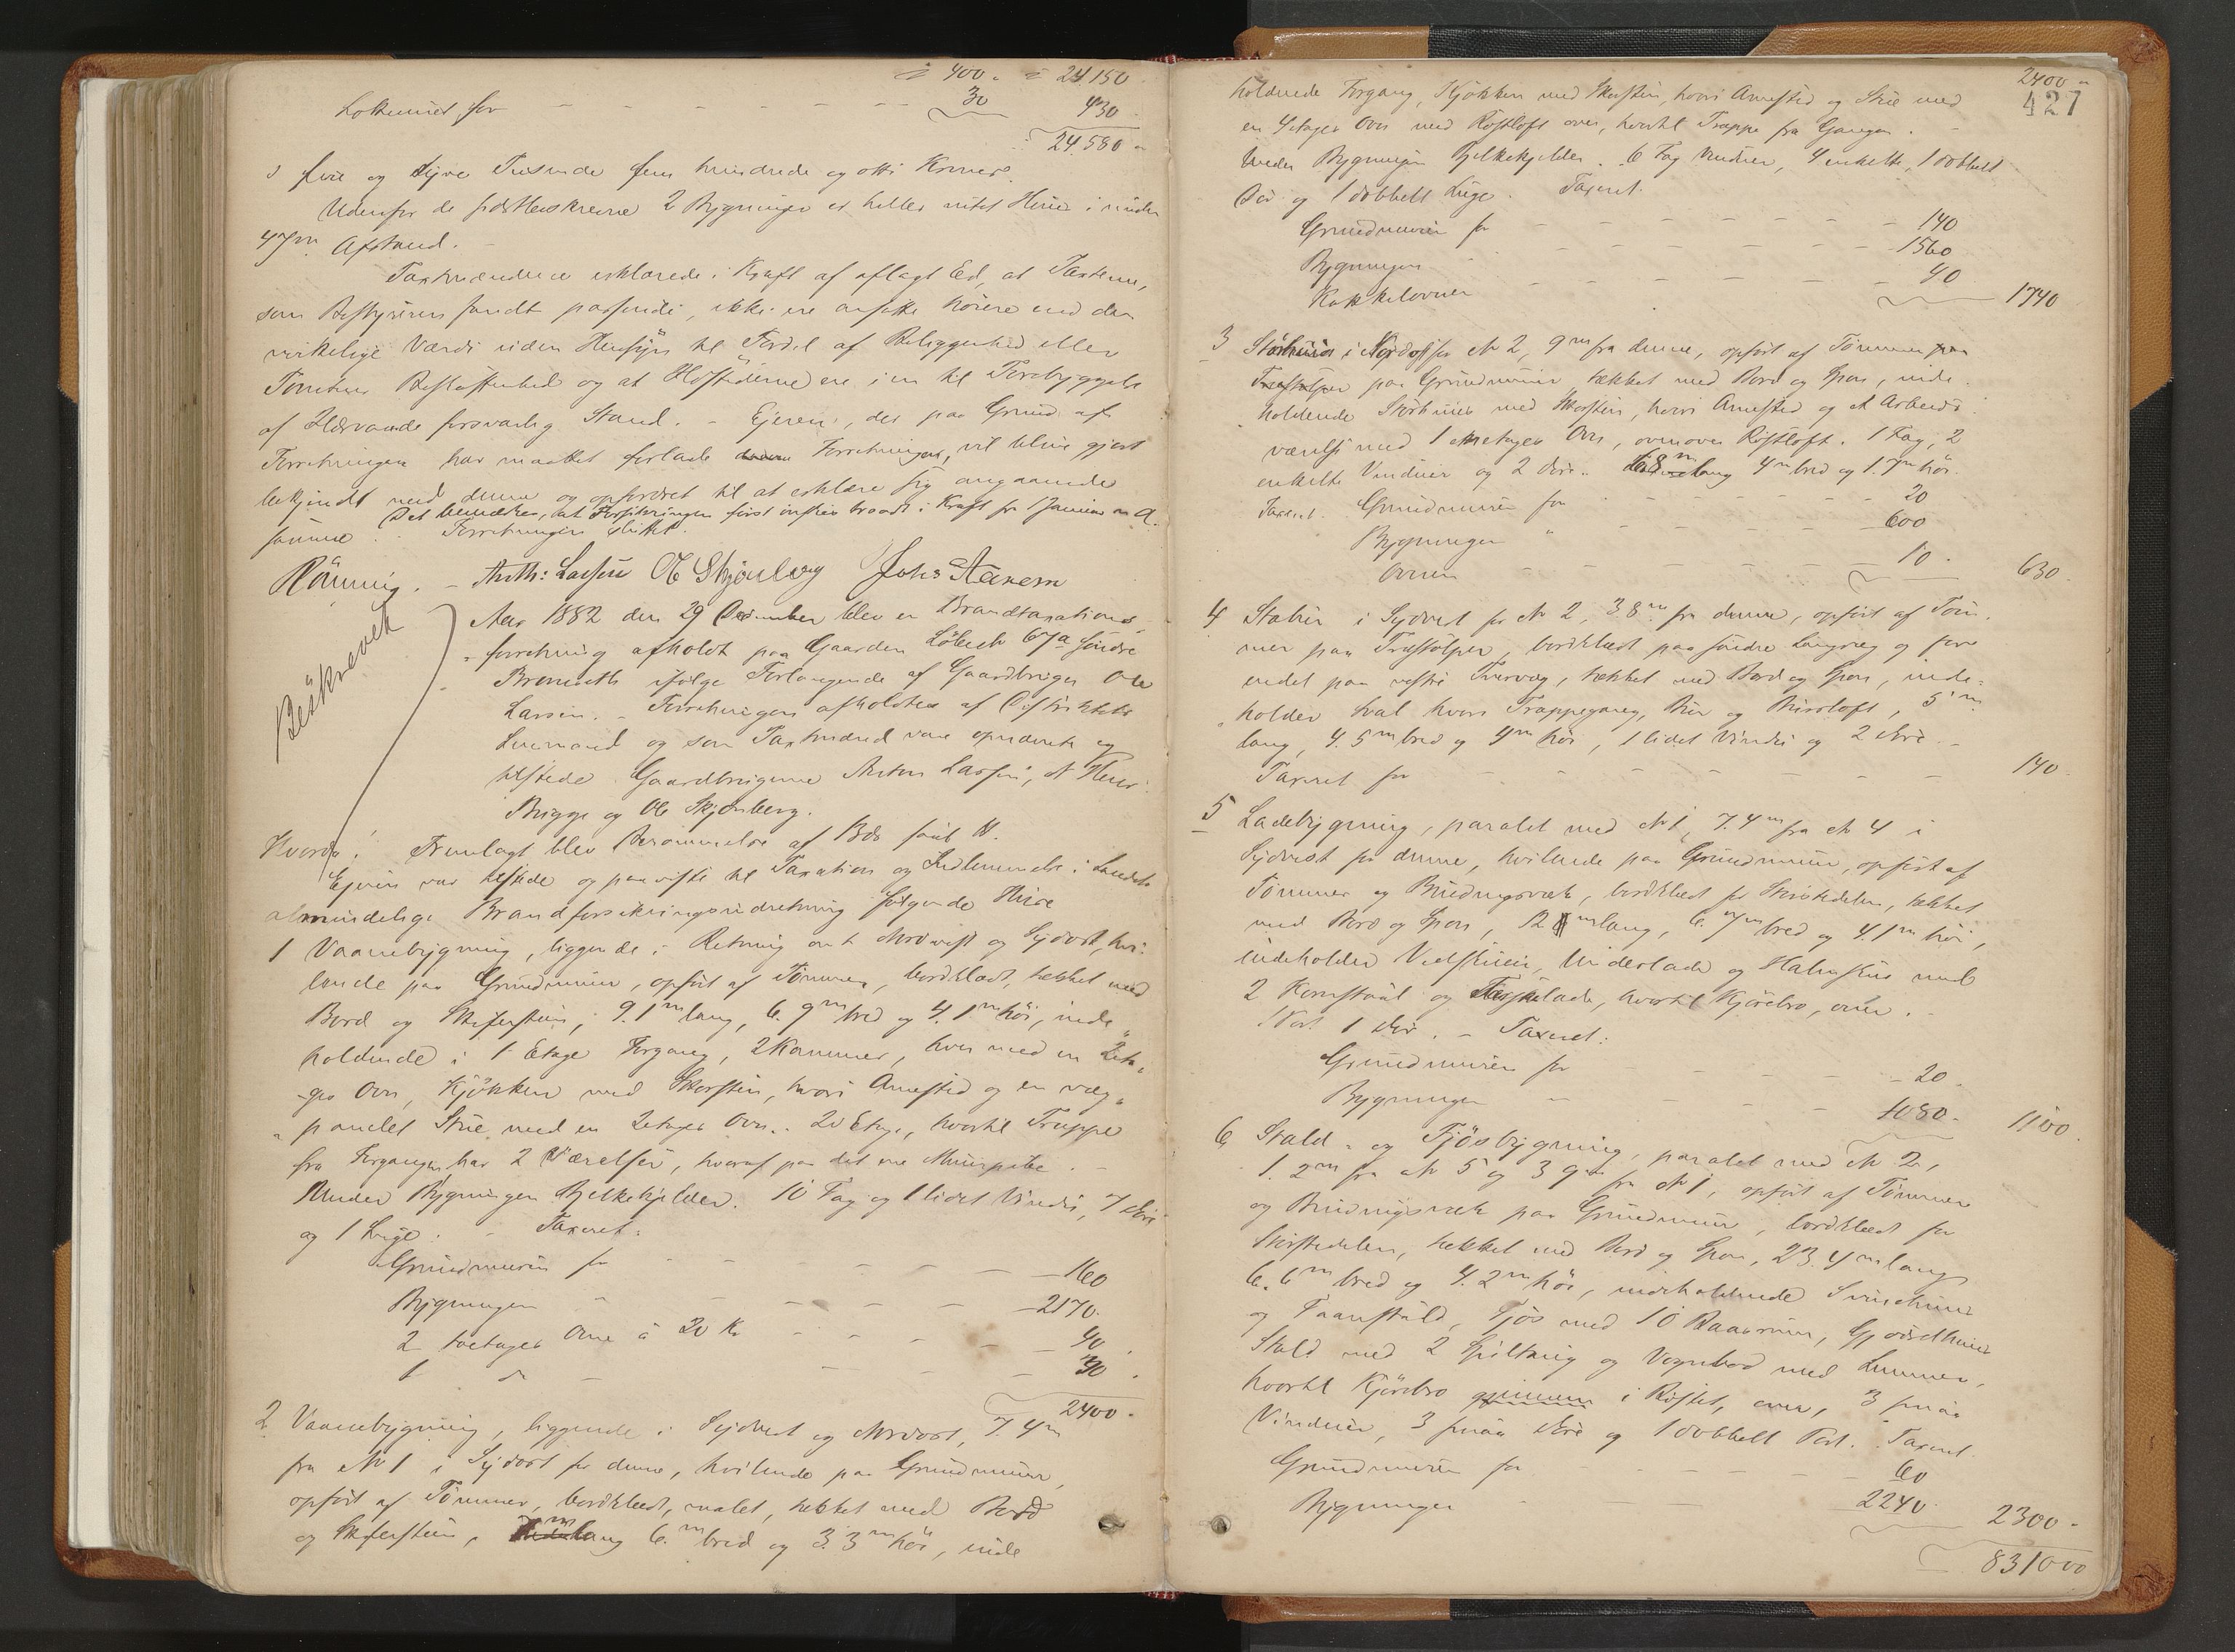 400 . = 24.150
Lokumet for – – – – – – – 30 430
24.580 -
: fire og tyve Tusinde fem hundrede og otti Kroner.
Udenfor de sidstbeskrevne 2 Bygninger er heller intet Huus i under
47m Afstand. –
Taxtmændene erklærede i Kraft af aflagt Ed, at Taxterne,
som Bestyreren fandt passende, ikke ere ansatte høiere end den
virkelige Værdi uden Hensyn til Fordel af Beliggenhed eller
Tomtens Beskaffenhed og at Ildstederne ere i en til Forebyggelse
af Ildsvaade forsvarlig Stand. – Eieren, der paa Grund af
Forretningen har maattet forlade Forretningen, vil blive gjort
bekjendt med denne og opfordret til at erklære sig angaaende
Det bemærkes, at Forsikringen først ønskes traadt i Kraft fra 1 Januar n. A.
samme. – Forretningen sluttet.
Rønnig. – Anth: Larsen Ole Skjønberg Johs Aanesen
Beskrevet
Aar 1882 den 29 December blev en Brandtaxations
forretning afholdt paa Gaarden Løbesh 67a søndre
Brenneth ifølge Forlangende af Gaardbruger Ole
Larsen. – Forretningen afholdtes af Distriktets
Lensmand og som Taxtmænd vare opnævnte og
tilstede Gaardbrugerne Anton Larsen, A
Brygge og Ole Skjønberg.
Hvorda: Fremlagt blev Berammelse af Bds
Eieren var tilstede og paaviste til Taxation og Indlemmelse i Landets
almindelige Brandforsikringsindretning følgende Huse
1 Vaanebygning, liggende i Retning om t. Nordvest og Sydost, hvi-
lende paa Grundmuur, opført af Tømmer, bordklædt, tækket med
Bord og Skifersteen, 9.1m lang, 6.9m bred og 4.1m høi, inde
holdende i 1 Etage Forgang, 2 Kammer, hver med en 2eta-
ges Ovn, Kjøkken med Skorsten, hvori Arnested og en væg-
panelet Stue med en 2etages Ovn. 2d Etage, hvortil Trappe
fra Forgangen har 2 Værelser, hvoraf paa det ene Muurpibe. –
Under Bygningen Bjelkekjelder. 10 Fag og 1 lidet Vindue, 7 Døre
og 1 Luge. – Taxeret:
Grundmuren for – – – – – – 160
Bygningen " – – – – – 2170.
2 toetages Ovne à 20 Kr – – – – – 40.
1 do – – – – 30.
2400.
2 Vaanebygning, liggende i Sydvest og Nordost, 7.4m
fra No 1 i Sydost for denne, hvilende paa Grundmuur,
opført af Tømmer, bordklædt, malet, tækket med Bord
og Skifersteen, lang 6.m bred og 3.3m høi, inde
2400 -
427
holdende Forgang, Kjøkken med Skorsten, hvori Arnested og Stue med
en 4etages Ovn med Røstloft over, hvortil Trappe fra Gangen. –
Under Bygningen Bjelkekjelder. 6 Fag Vinduer, 4 enkelte, 1 dobbelt
Dør og 1 dobbelt Luge. Taxeret.
Grundmuren for – – – – – – 140
Bygningen – – – – – – 1560
Kakkelovnen – – – – – 40 1740
3 Størhuus i Nordost for No 2, 9m fra denne, opført af Tømmer
paa Grundmuur tækket med Bord og Spon, inde-
holdende Størhuus med Skorsten, hvori Arnested og et Arbeids-
værelse med 1 enetages Ovn, ovenover Røstloft. 1 Fag, 2
enkelte Vinduer og 2 Døre. lang 4m bred og 1.7m høi.
Taxeret. Grundmuren for – – – – – – 20
Bygningen " – – – – – 600
Ovnen – – – – – 10. 630.
4 Stabur i Sydvest for No 2, 38m fra denne, opført af Tøm-
mer paa Træstolper, bordklædt paa søndre Langvæg og for-
endet paa vestre Tvervæg, tækket med Bord og Spon, inde-
holder Sval hvori Trappegang, Bur og Bursloft, 5m
lang, 4.5m bred og 4m høi, 1 lidet Vindue og 2 Døre. –
Taxeret for – – – – – – – – 140.
5 Ladebygning, paralel med No 1, 7.4m fra No 4 i
Sydvest for denne, hvilende paa Grundmuur, opført af
Tømmer og Bindingsværk, bordklædt for Størstedelen, tækket
med Bord og Spon, 12 m lang, 6.7m bred og 4.1m høi,
indeholder Vedskuur, Underlade og Halmskuur med
2 Kornstaal og Treskelade, hvortil Kjørebro, over. –
1 Port 1 Dør. – Taxeret:
Grundmuren for – – – – – 20.
Bygningen – – – – – – 1080. 1100.
6 Stald- og Fjøsbygning, paralel med No 2,
1.2m fra No 5 og 39m fra No 1, opført af Tømmer
og Bindingsværk paa Grundmuur, bordklædt for
Størstedelen, tækket med Bord og Spon, 23.4m lang
6.6m bred og 4.2m høi, indeholdende Sviinehuus
og Faarestald, Fjøs med 10 Baasrum, Gjødselhuus
Stald med 2 Spiltaug og Vognbod med Lemmer,
hvortil Kjørebro i Røstet, over, 3 smaa
Vinduer, 3 smaa Døre og 1 dobbelt Port. Taxeret.
Grundmuren for – – – – – 60
Bygningen – – – – – 2240. 2300 -
831000